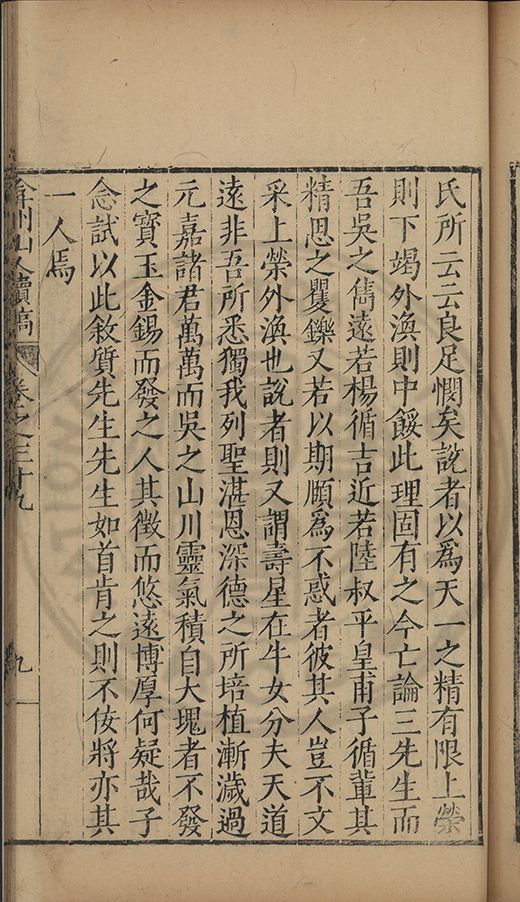 氏所云云良足憫矣說者以為天一之精有限上榮
則下竭外渙則中餒此理固有之今亡論三先生而
吾吳之雋遠若楊循吉近若陸叔平皇甫子循輩其
精思之矍鑠又若以期頤為不惑者彼其人豈不文
采上榮外渙也說者則又謂壽星在牛女分夫天道
遠非吾所悉獨我列聖湛恩深德之所培植漸濊過
元嘉諸君萬萬而吳之山川靈氣積自大塊者不發
之寶玉金錫而發之人其徵而悠遠博厚何疑哉子
念試以此敘質先生先生如首肯之則不佞將亦其
一人焉
弇州山人續稿 卷之三十九 九